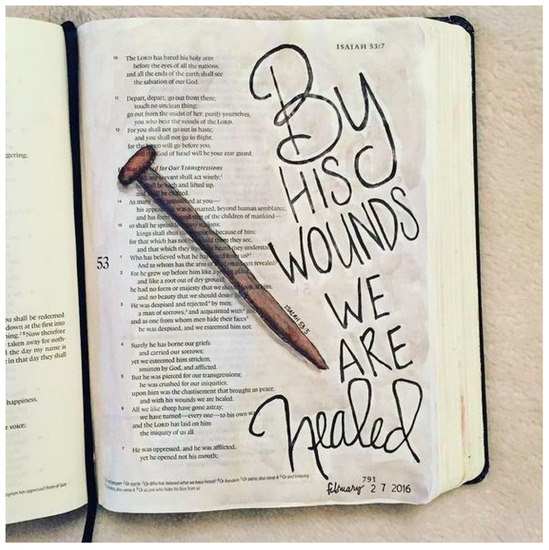 ISAIAH 53:7
10 The LORD has bared his holy arm
before the eyes of all the nations,
and all the ends of the earth shall see
the salvation of our God.
11 Depart, depart, go out from there;
touch no unclean thing;
go out from the midst of her; purify yourselves,
you who bear the vessels of the LORD.
12 For you shall not go out in haste,
and you shall not go in flight,
for the will go before you,
of Israel will be your rear guard.
for Our Transgressions
servant shall act wisely;
and lifted up,
14 As many at you—
his beyond human semblance,
and his of the children of mankind—
15 so shall he sprinkle
kings shall shut because of him;
for that which has not them they see,
and that which they understand.
53
1 Who has believed what he
And to whom has the arm of revealed?
2 For he grew up before him like
and like a root out of dry
he had no form or majesty that we him,
and no beauty that we should desire
3 He was despised and rejected by men;
a man of sorrows, and acquainted with
and as one from whom men hide their faces
he was despised, and we esteemed him not.
4 Surely he has borne our griefs
and carried our sorrows;
yet we esteemed him stricken,
smitten by God, and afflicted.
5 But he was pierced for our transgressions;
he was crushed for our iniquities;
upon him was the chastisement that brought us peace,
and with his wounds we are healed.
6 All we like sheep have gone astray;
we have turned—every one—to his own
and the LORD has laid on him
the iniquity of us all.
7 He was oppressed, and he was afflicted,
yet he opened not his mouth;
By
HIS
WOUNDS
WE
ARE
Healed
ISAIAH 53:5
791
february 27 2016
shall be redeemed
down at the first into
Now therefore
taken away for
the day my name is
in that day they shall
happiness,
voice;